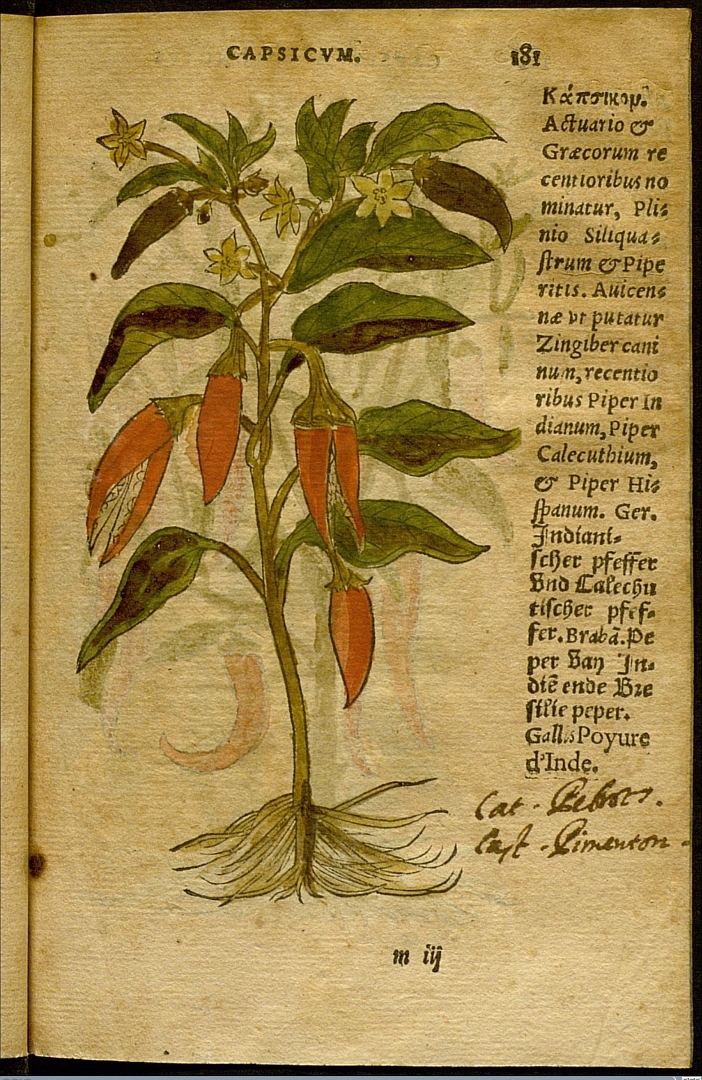 CAPSICVM.
181
Κάπσικομ.
Actuario &
Græcorum re
centioribus no
minatur, Pli⸗
nio Siliqua⸗
ſtrum & Pipe
ritis. Auicen⸗
næ vt putatur
Zingiber cani
num, recentio
ribus Piper In
dianum, Piper
Calecuthium,
& Piper Hi⸗
ſpanum. Ger.
Indiani⸗
ſcher pfeffer
Vnd Calechu
tiſcher pfef⸗
fer. Brabā. Pe
per Van In⸗
diē ende Bre
ſilie peper.
Gallis Poyure
d'Inde.
Cat. Pebrots.
Caſt. Pimenton.
m iij